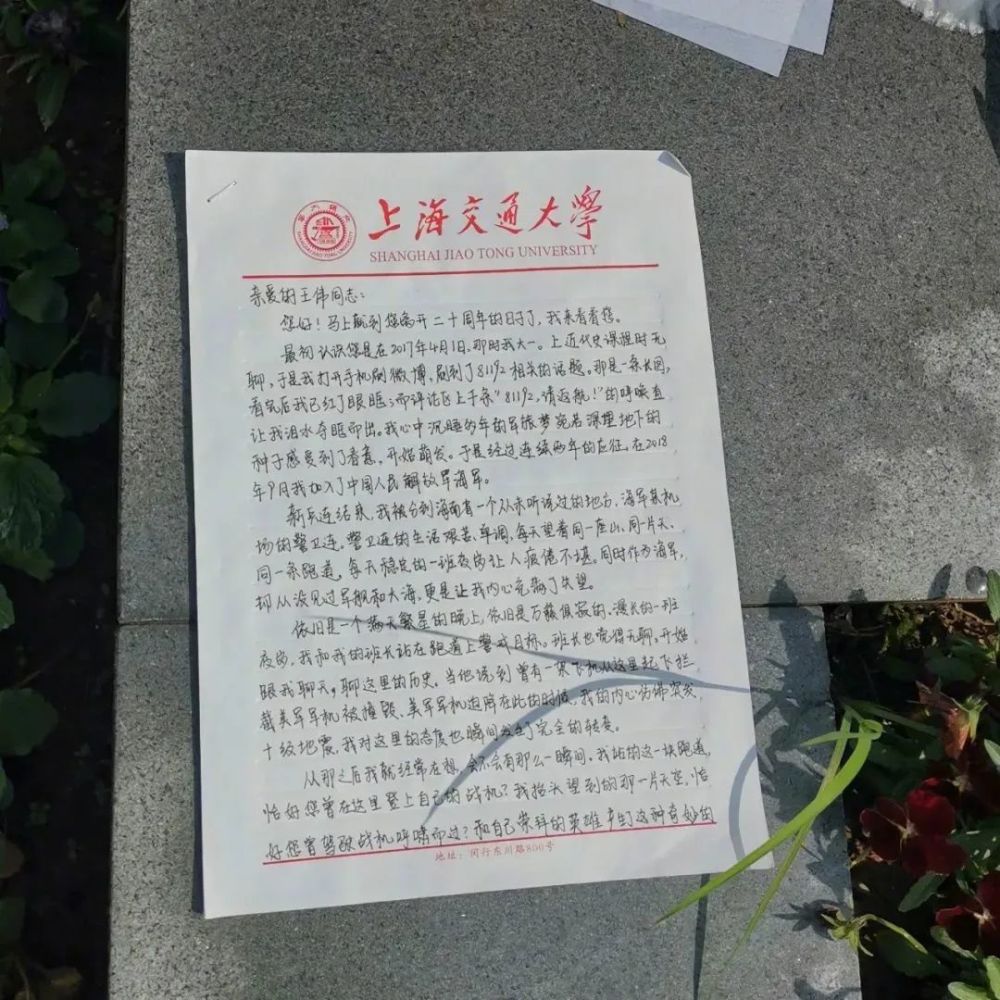 上海交通大學
SHANGHAI JIAO TONG UNIVERSITY
亲爱的王伟同志：
您好！马上就到您离开二十周年的日子了，我来看看您。
最初认识您是在2017年4月1日，那时我大一。上近代史课程时无
聊，于是我打开手机刷微博，刷到了81192相关的话题。那是一条长图，
看完后我已红了眼眶；而评论区上千条“81192，请返航！”的呼唤直
让我泪水夺眶而出。我心中沉睡多年的军旅梦宛若深埋地下的
种子感受到了春意，开始萌发。于是经过连续两年的应征，在2018
年9月我加入了中国人民解放军海军。
新兵连结束，我被分到海南省一个从未听说过的地方，海军某机
场的警卫连。警卫连的生活艰苦、单调，每天望着同一座山、同一片天、
同一条跑道，每天稳定的一班夜岗让人疲倦不堪。同时作为海军，
却从没见过军舰和大海，更是让我内心充满了失望。
依旧是一个满天繁星的晚上，依旧是万籁俱寂的、漫长的一班
夜岗，我和我的班长站在跑道上警戒目标。班长也觉得无聊，开始
跟我聊天，聊这里的历史。当他谈到曾有一架飞机从这里起飞拦
截美军军机被撞毁、美军军机迫降在此的时候，我的内心仿佛突发
十级地震，我对这里的态度也瞬间发生了完全的转变。
从那之后我就经常在想，会不会有那么一瞬间，我站的这一块跑道，
恰好您曾在这里登上自己的战机？我抬头望到的那一片天空，恰
好您曾驾驶战机呼啸而过？和自己崇拜的英雄产生这种奇妙的
地址：闵行东川路800号